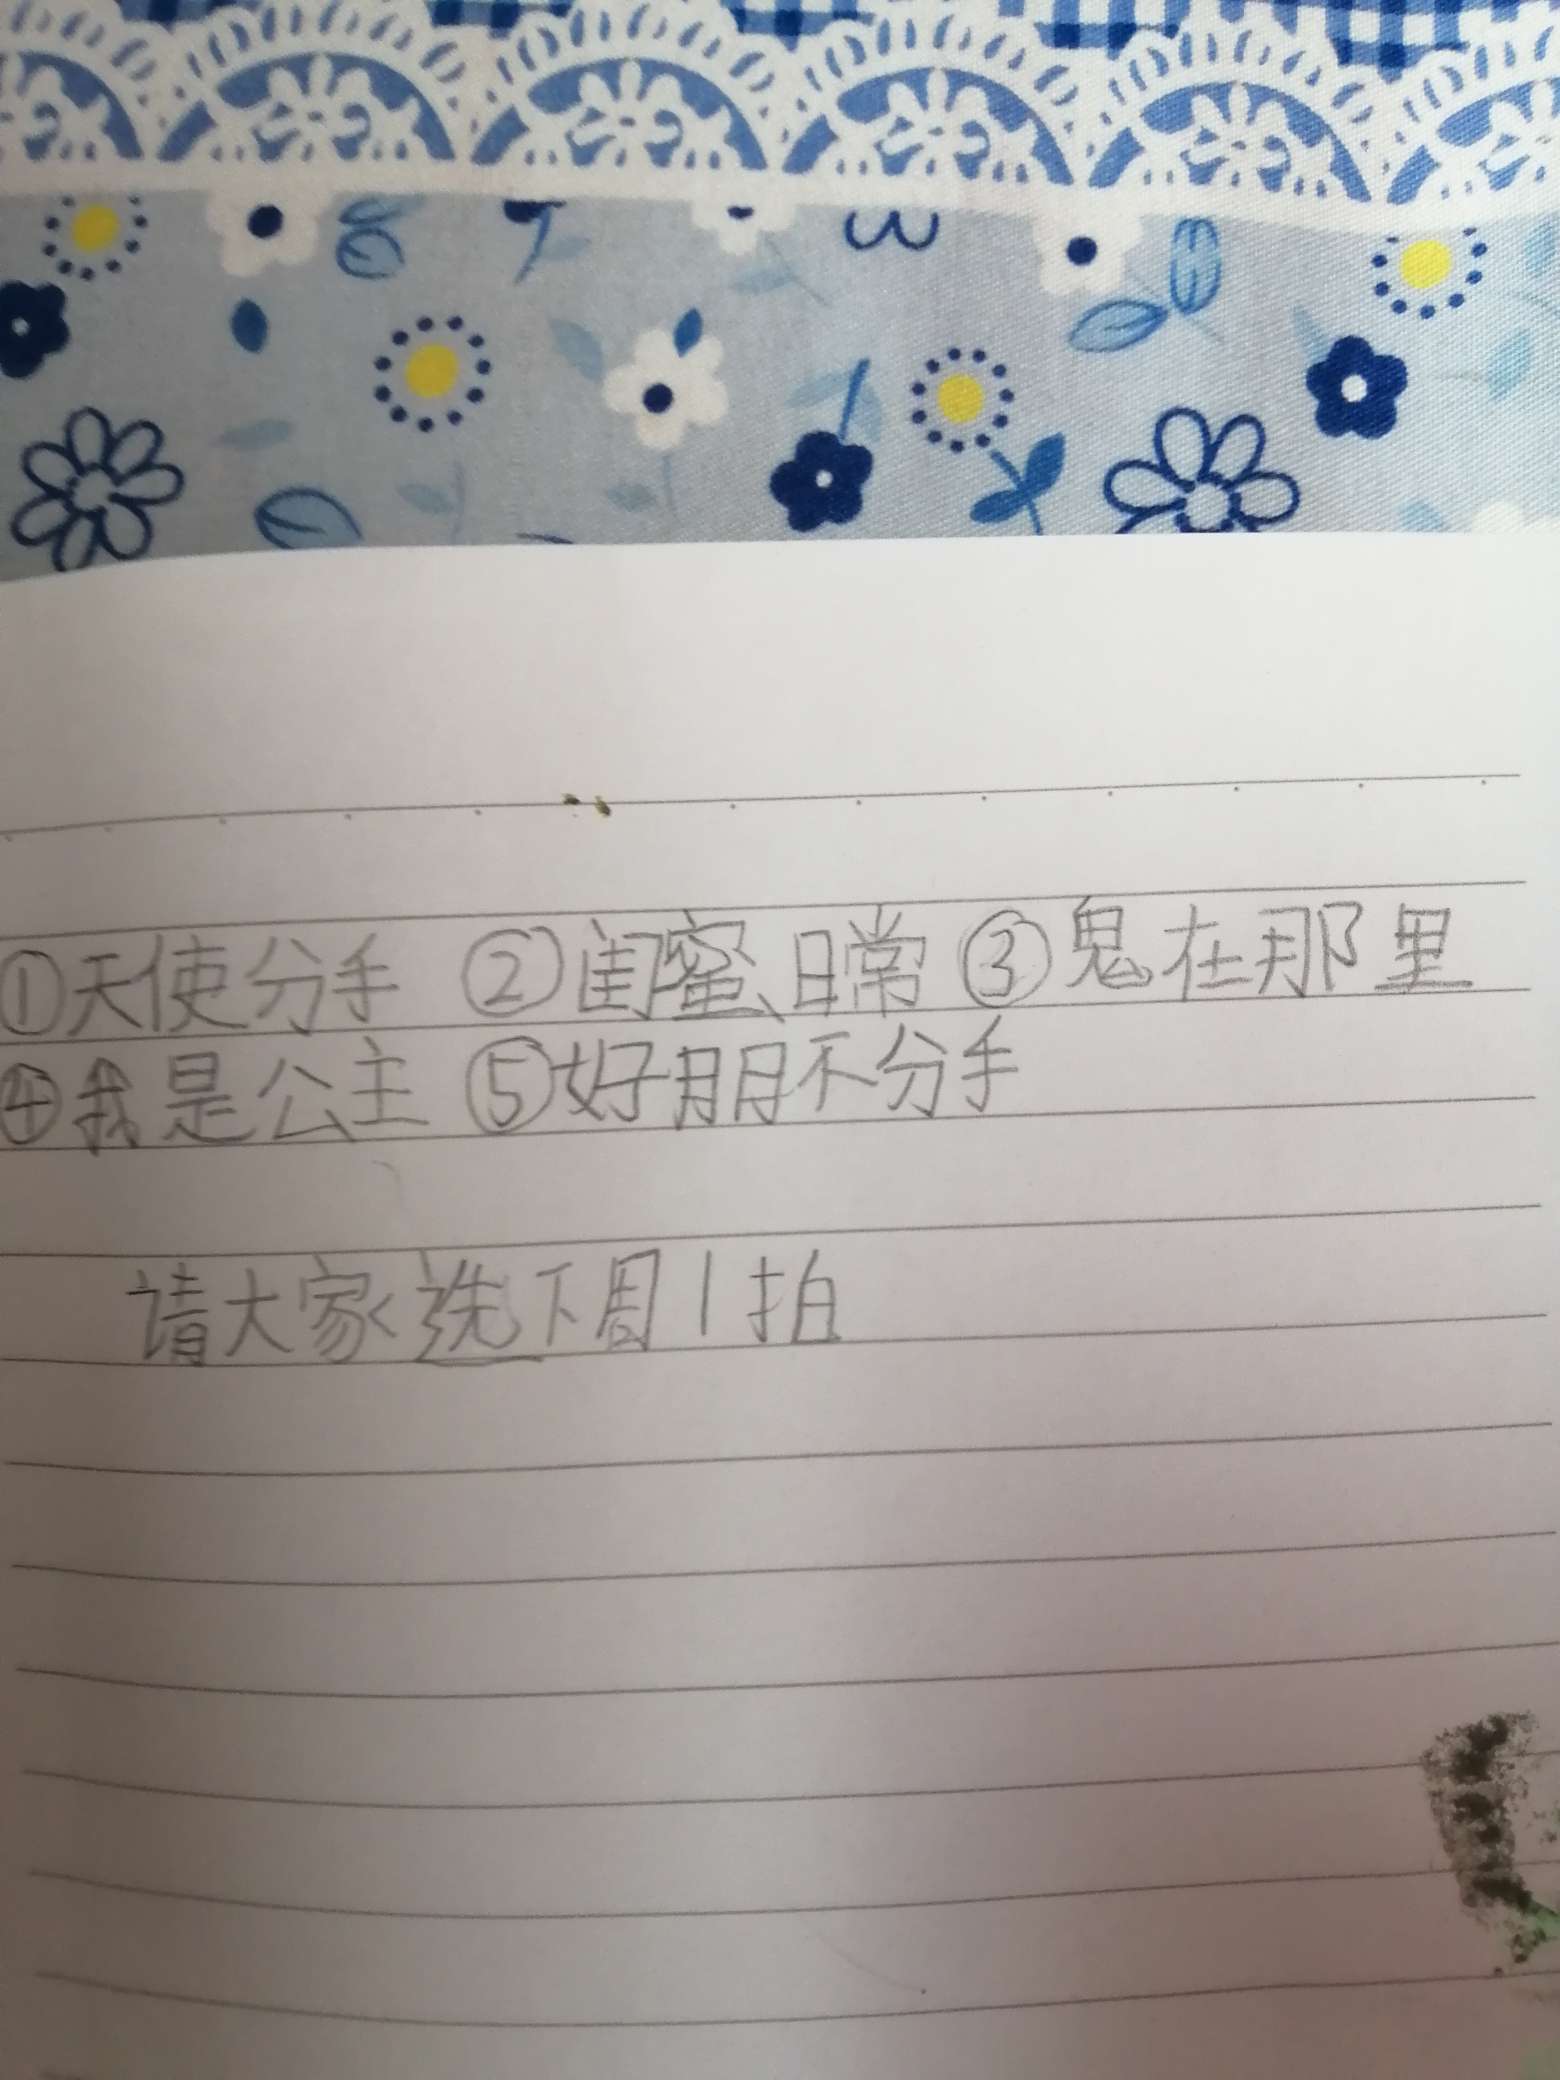 ①天使分手 ②闺蜜日常 ③鬼在那里
④我是公主 ⑤好朋不分手
请大家选下周1拍